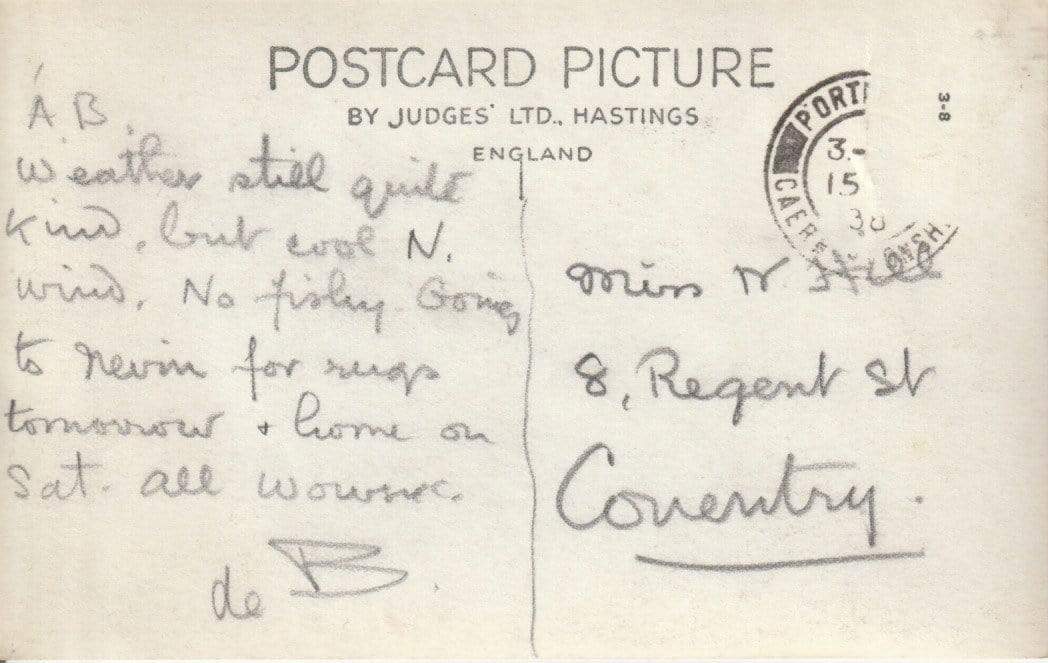 POSTCARD PICTURE
BY JUDGES' LTD., HASTINGS
ENGLAND
A. B.
Weather still quite
kind, but cool N.
wind. No fishy. Going
to Nevin for rugs
tomorrow + home on
Sat. All
de B.
PORTM
CAER
ONSH
3.-
15
38
3-8
Miss W. Hill
8, Regent St
Coventry.